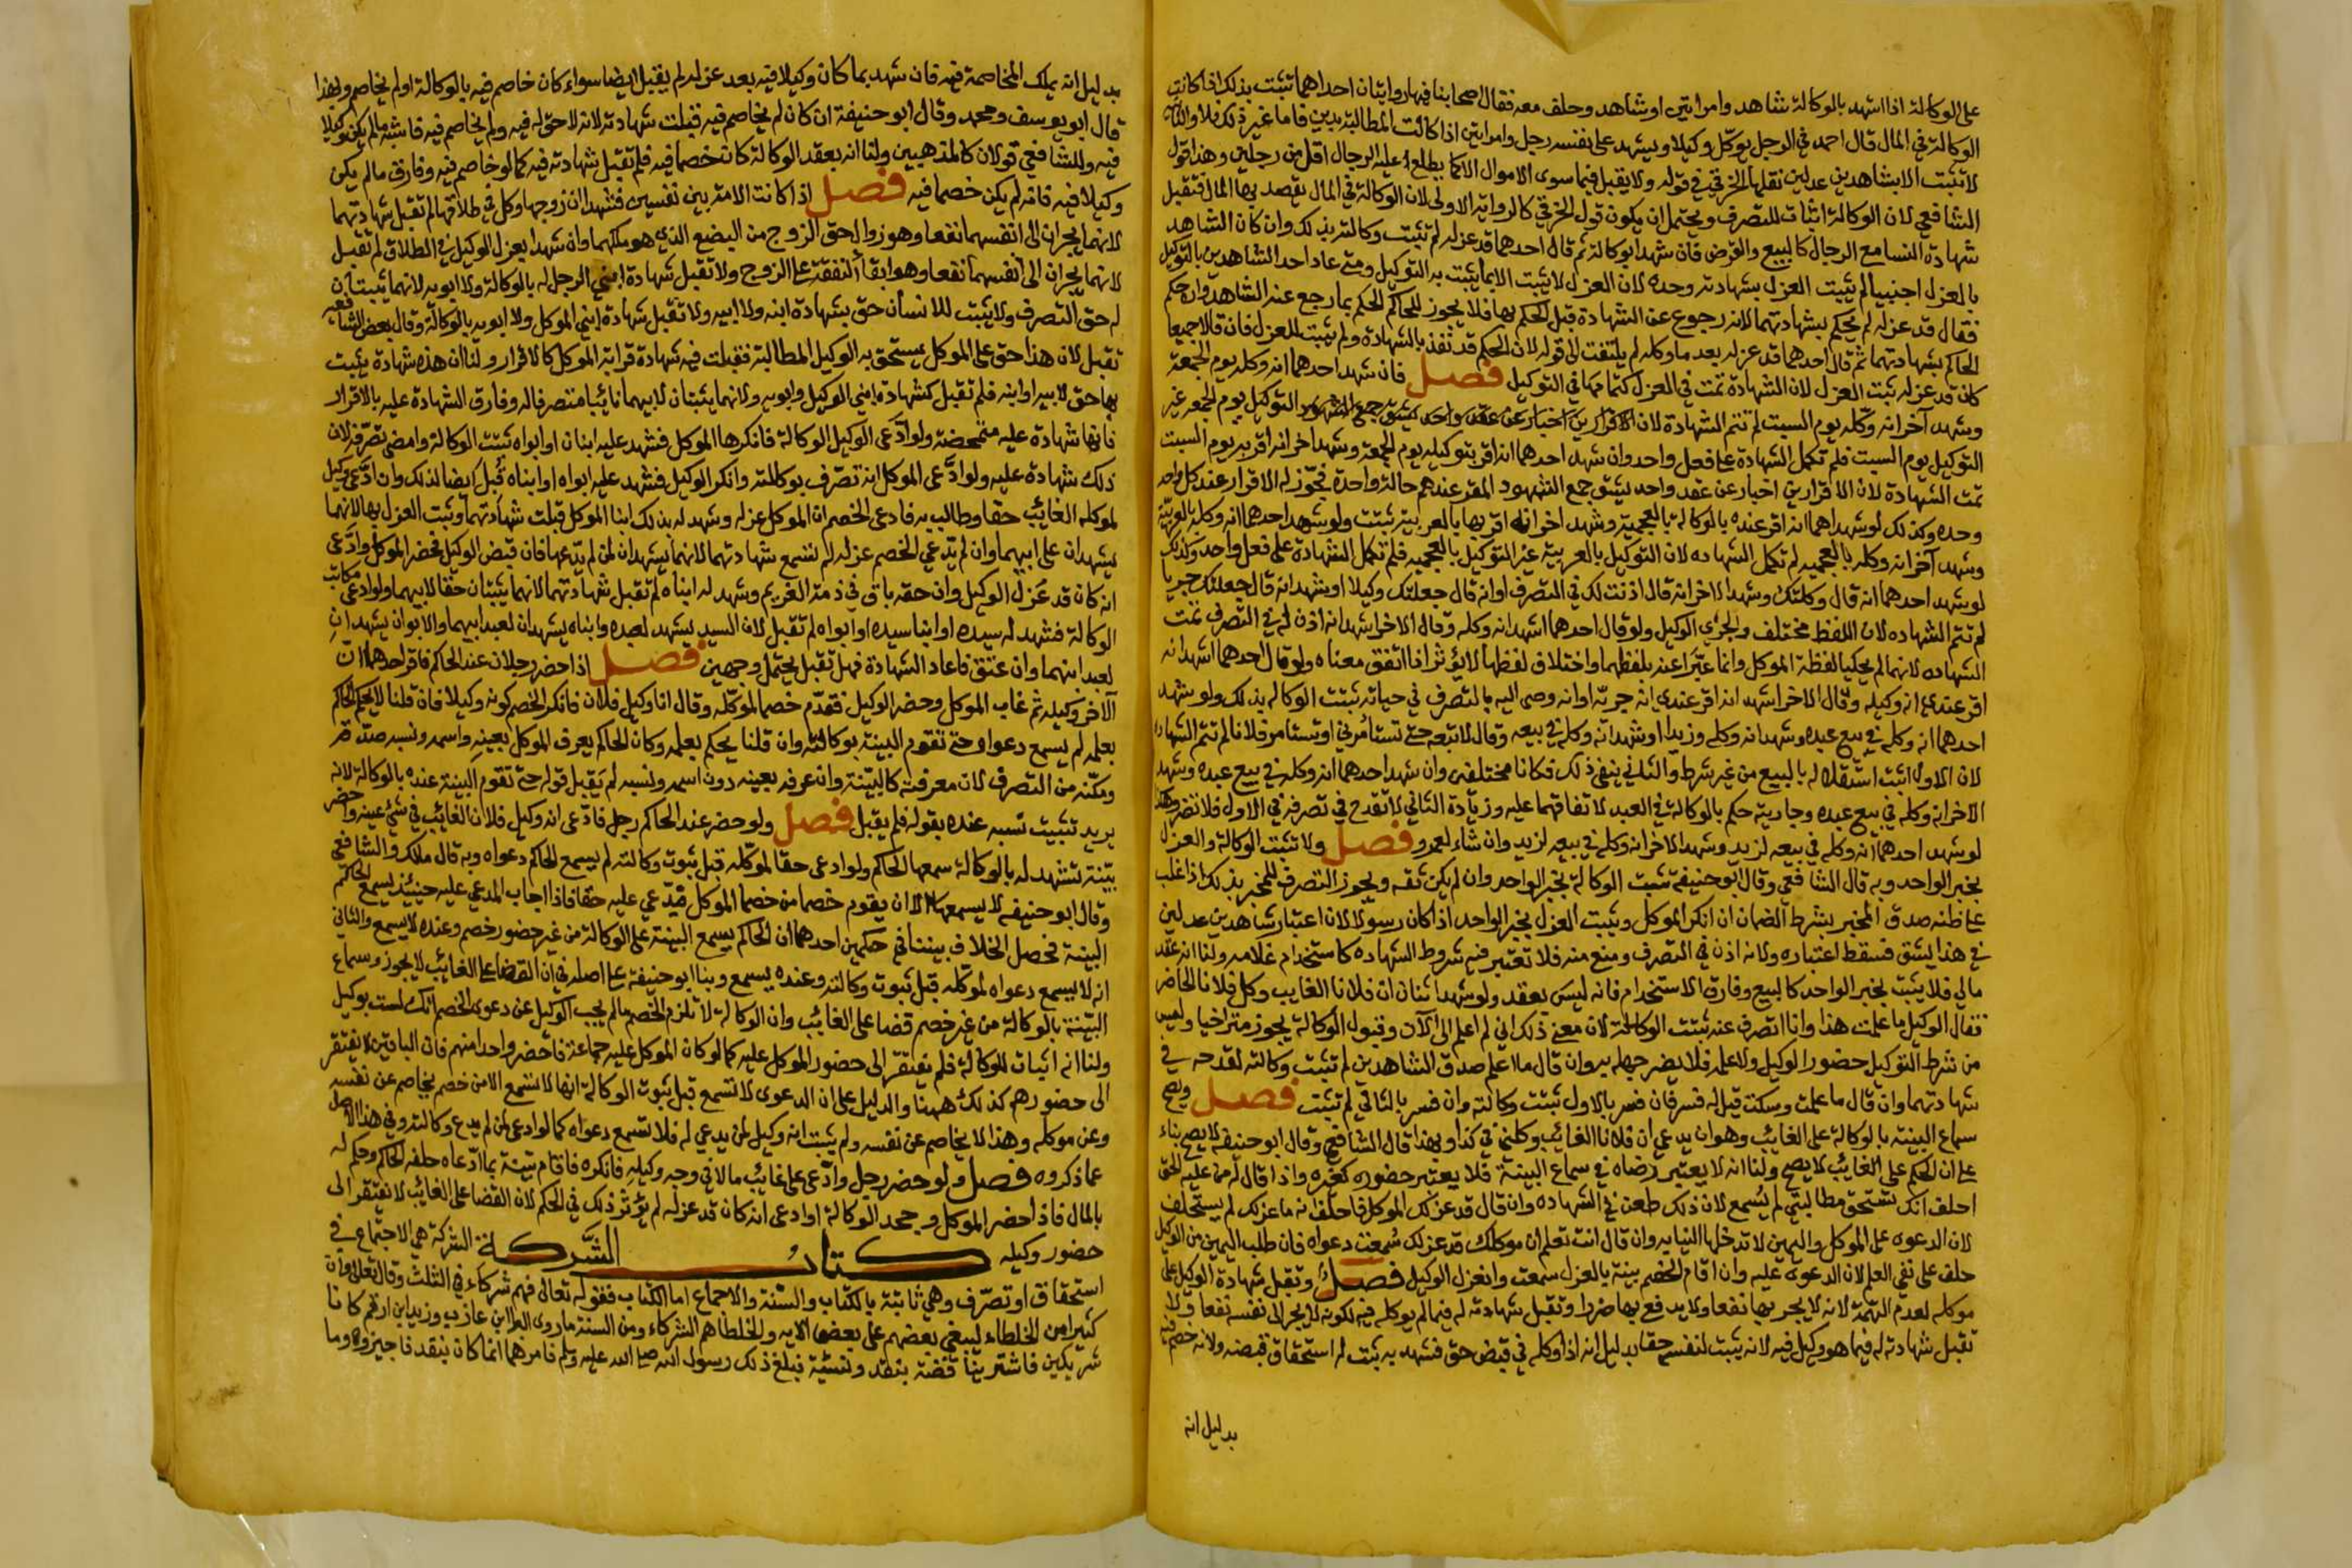 على الوكالة اذا اشهد بالوكالة شاهد وامراتين او شاهد وحلف معه فقال اصحابنا فيها روايتان احداهما تثبت بذلك اذا كانت
الوكالة في المال قال احمد في الرجل يوكّل وكيلا ويشهد على نفسه رجل وامراتين اذا كانت المطالبة بدين فاما غير ذلك فلا والثانية
لا تثبت الا بشاهدين عدلين نقلها الخرقي في قوله ولا يقبل فيما سوى الاموال الا كما يطلع عليه الرجال اقل من رجلين وهذا قول
الشافعي لان الوكالة اثبات للتصرف ويحتمل ان يكون قول الخرقي كالرواية الاولى لان الوكالة في المال يقصد بها المال فتقبل
شهادة النسا مع الرجال كالبيع والقرض فان شهدا بوكالة ثم قال احدهما قد عزله لم تثبت وكالته بذلك وان كان الشاهد
بالعزل اجنبيا لم يثبت العزل بشهادته وحده لان العزل لا يثبت الا بما يثبت به التوكيل ومتى عاد احد الشاهدين بالتوكيل
فقال قد عزله لم يحكم بشهادتهما لانه رجوع عن الشهادة قبل الحكم بها فلا يجوز للحاكم الحكم بما رجع عنه الشاهد وان حكم
الحاكم بشهادتهما ثم قال احدهما قد عزله بعد ما وكله لم يلتفت الى قوله لان الحكم قد نفذ بالشهادة ولم يثبت العزل فان قالا جميعا
كان قد عزله ثبت العزل لان الشهادة تمت في العزل كتمامها في التوكيل فصل فان شهد احدهما انه وكله يوم الجمعة
وشهد آخر انه وكّله يوم السبت لم تتم الشهادة لان التوكيل يوم الجمعه غير
التوكيل يوم السبت فلم تكمل الشهادة على فعل واحد وان شهد احدهما انه اقر بتوكيله يوم الجمعة وشهد اخر انه اقر به يوم السبت
تمت الشهادة لان الاقرارين اخبار عن عقد واحد يشق جمع الشهود المقر عندهم حالة واحدة فجوّز له الاقرار عند كل واحد
وحده وكذلك لو شهد احدهما انه اقر عنده بالوكالة بالعجمية وشهد اخر انه اقر بها بالعربية ثبتت ولو شهد احدهما انه وكله بالعربية
وشهد آخر انه وكله بالعجميه لم تكمل الشهاده لان التوكيل بالعربيه غير التوكيل بالعجميه فلم تكمل الشهادة على فعل واحد وكذلك
لو شهد احدهما انه قال وكلتك وشهد الاخر انه قال اذنت لك في التصرف او انه قال جعلتك وكيلا او شهد انه قال جعلتك جريا
لم تتم الشهاده لان اللفظ مختلف والجري الوكيل ولو قال احدهما اشهد انه وكله وقال الاخر اشهد انه اذن له في التصرف تمت
الشهاده لانهما لم يحكيا لفظة الموكل وانما عبّرا عنه بلفظهما واختلاف لفظهما لا يؤثر اذا اتفق معناه ولو قال احدهما اشهد انه
اقر عندي انه وكيله وقال الاخر اشهد انه اقر عندي انه جريّه او انه وصى اليه بالتصرف في حياته ثبتت الوكاله بذلك ولو شهد
احدهما انه وكله في بيع عبده وشهد انه وكله وزيدا او شهد انه وكله في بيعه وقال لا تبعه حتى تستأمرني او تستامر فلانا لم تتم الشهادة
لان الاول اثبت استقلاله بالبيع من غير شرط والثاني ينفي ذلك فكانا مختلفين وان شهد احدهما انه وكله في بيع عبده وشهد
الاخر انه وكله في بيع عبده وجاريته حكم بالوكالة في العبد لاتفاقهما عليه وزيادة الثاني لا تقدح في تصرفه في الاول فلا تضر وهكذا
لو شهد احدهما انه وكله في بيعه لزيد وشهد الاخر انه وكله في بيعه لزيد وان شاء لعمرو فصل ولا تثبت الوكالة والعزل
بخبر الواحد وبه قال الشافعي وقال ابو حنيفة تثبت الوكالة بخبر الواحد وان لم يكن ثقه ويجوز التصرف للمخبر بذلك اذا غلب
على ظنه صدق المخبر بشرط الضمان ان انكر الموكل ويثبت العزل بخبر الواحد اذا كان رسولا لان اعتبار شاهدين عدلين
في هذا يشق فسقط اعتباره ولانه اذن في التصرف ومنع منه فلا تعتبر فيه شروط الشهاده كاستخدام غلامه ولنا انه عقد
مالي فلا يثبت بخبر الواحد كالبيع وفارق الاستخدام فانه ليس بعقد ولو شهد اثنان ان فلانا الغايب وكل فلانا الحاضر
فقال الوكيل ما علمت هذا وانا اتصرف عنه ثبتت الوكالة لان معنى ذلك اني لم اعلم الى الآن وقبول الوكالة يجوز متراخيا وليس
من شرط التوكيل حضور الوكيل ولا علمه فلا يضر جهله به وان قال ما اعلم صدق الشاهدين لم تثبت وكالته لقدحه في
شهادتهما وان قال ما علمت وسكت قيل له فسر فان فسر بالاول ثبتت وكالته وان فسر بالثاني لم تثبت فصل ويصح
سماع البينة بالوكالة على الغائب وهو ان يدعي ان فلانا الغايب وكلني في كذا وبهذا قال الشافعي وقال ابو حنيفة لا يصح بناء
على ان الحكم على الغائب لا يصح ولنا انه لا يعتبر رضاه في سماع البينة فلا يعتبر حضوره كغيره واذا قال له من عليه الحق
احلف انك تستحق مطالبتي لم يُسمع لان ذلك طعن في الشهاده وان قال قد عزلك الموكل فاحلف انه ما عزلك لم يستحلف
لان الدعوى على الموكل واليمين لا تدخلها النيابه وان قال انت تعلم ان موكلك قد عزلك سُمعت دعواه فان طلب اليمين من الوكيل
حلف على نفي العلم لان الدعوى عليه وان اقام الخصم بينة بالعزل سمعت وانعزل الوكيل فصل وتقبل شهادة الوكيل على
موكله لعدم التهمة لانه لا يجر بها نفعا ولا يدفع بها ضررا وتقبل شهادته له فيما لم يوكله فيه لكونه لا يجر الى نفسه نفعا ولا
تقبل شهادته له فيما هو وكيل فيه لانه يثبت لنفسه حقا بدليل انه اذا وكله في قبض حق فشهد به ثبت له استحقاق قبضه ولانه خصم فيه
بدليل انه
بدليل انه يملك المخاصمة فيه فان شهد بما كان وكيلا فيه بعد عزله لم يقبل ايضا سواء كان خاصم فيه بالوكالة او لم يخاصم وبهذا
قال ابو يوسف ومحمد وقال ابو حنيفة ان كان لم يخاصم فيه قبلت شهادته لانه لا حق له فيه ولم يخاصم فيه فاشبه ما لم يكن وكيلا
فيه وللشافعي قولان كالمذهبين ولنا انه بعقد الوكالة كان خصما فيه فلم تقبل شهادته فيه كما لو خاصم فيه وفارق ما لم يكن
وكيلا فيه فانه لم يكن خصما فيه فصل اذا كانت الامة بين نفسين فشهدا ان زوجها وكل في طلاقها لم تقبل شهادتهما
لانهما يجران الى انفسهما نفعا وهو زوال حق الزوج من البضع الذي هو ملكهما وان شهدا بعزل الوكيل في الطلاق لم تقبل
لانهما يجران الى انفسهما نفعا وهو ابقا النفقة على الزوج ولا تقبل شهادة ابني الرجل له بالوكالة ولا ابويه لانهما يثبتان
له حق التصرف ولا يثبت للانسان حق بشهادة ابنه ولا ابيه ولا تقبل شهادة ابني الموكل ولا ابويه بالوكالة وقال بعض الشافعيه
تقبل لان هذا حق على الموكل يستحق به الوكيل المطالبة فقبلت فيه شهادة قرابة الموكل كالاقرار ولنا ان هذه شهادة يثبت
بها حق لابيه او ابنه فلم تقبل كشهادة ابني الوكيل وابويه ولانهما يثبتان لابيهما نائبا متصرفا له وفارق الشهادة عليه بالاقرار
فانها شهادة عليه متمحضة ولو ادّعى الوكيل الوكالة فانكرها الموكل فشهد عليه ابنان او ابواه ثبتت الوكالة وامضى تصرّفه لان
ذلك شهادة عليه ولو ادّعى الموكل انه تصرّف بوكالته وانكر الوكيل فشهد عليه ابواه او ابناه قُبل ايضا لذلك وان ادّعى وكيل
لموكله الغائب حقا وطالب به فادعى الخصم ان الموكل عزله وشهد له بذلك ابنا الموكل قبلت شهادتهما وثبت العزل بها لانهما
يشهدان على ابيهما وان لم يدّعي الخصم عزله لم تسمع شهادتهما لانهما يشهدان لمن لم يدّعها فان قبض الوكيل فحضر الموكل وادّعى
انه كان قد عزل الوكيل وان حقه باق في ذمة الغريم وشهد له ابناه لم تقبل شهادتهما لانهما يثبتان حقا لابيهما ولو ادعى مكاتب
الوكالة فشهد له سيده او ابنا سيده او ابواه لم تقبل لان السيد يشهد لعبده وابناه يشهدان لعبد ابيهما والابوان يشهدان
لعبد ابنهما وان عتق فاعاد الشهادة فهل تقبل يحتمل وجهين فصل اذا حضر رجلان عند الحاكم فاقر احدهما انّ
الآخر وكيله ثم غاب الموكل وحضر الوكيل فقدّم خصما لموكّله وقال انا وكيل فلان فانكر الخصم كونه وكيلا فان قلنا لا يحكم الحاكم
بعلمه لم يسمع دعواه حتى تقوم البينة بوكالته وان قلنا يحكم بعلمه وكان الحاكم يعرف الموكل بعينه واسمه ونسبه صدّقه
ومكّنه من التصرف لان معرفته كالبيّنة وان عرفه بعينه دون اسمه ونسبه لم يقبل قوله حتى تقوم البينة عنده بالوكالة لانه
يريد تثبيت نسبه عنده بقوله فلم يقبل فصل ولو حضر عند الحاكم رجل فادّعى انه وكيل فلان الغائب في شئ عينه واحضر
بيّنة تشهد له بالوكالة سمعها الحاكم ولو ادعى حقا لموكّله قبل ثبوت وكالته لم يسمع الحاكم دعواه وبه قال مالك والشافعي
وقال ابو حنيفه لا يسمعها الا ان يقدم خصما من خصما الموكل فيدّعي عليه حقا فاذا اجاب المدعى عليه حينئذ يسمع الحاكم
البينة فحصل الخلاف بيننا في حكمين احدهما ان الحاكم يسمع البينة على الوكالة من غير حضور خصم وعنده لا يسمع والثاني
انه لا يسمع دعواه لموكّله قبل ثبوت وكالته وعنده يسمع وبنا ابو حنيفة على اصله في ان القضا على الغائب لا يجوز وسماع
البيّنة بالوكالة من غير خصم قضا على الغائب وان الوكالة لا تلزم الخصم ما لم يجب الوكيل عن دعوى الخصم انك لست بوكيل
ولنا انه اثبات للوكالة فلم يفتقر الى حضور الموكل عليه كما لو كان الموكل عليه جماعة فاحضر واحدا منهم فان الباقين لا يفتقر
الى حضورهم كذلك ههنا والدليل على ان الدعوى لا تسمع قبل ثبوت الوكالة انها لا تسمع الا من خصم يخاصم عن نفسه
وعن موكله وهذا لا يخاصم عن نفسه ولم يثبت انه وكيل لمن يدعي له فلا تسمع دعواه كما لو ادعى لمن لم يدع وكالته وفي هذا الاصل
عما ذكروه فصل ولو حضر رجل وادّعى على غائب مالا في وجه وكيله فانكره فاقام بيّنة بما ادّعاه حلفه الحاكم وحكم له
بالمال فاذا احضر الموكل وجحد الوكالة او ادعى انه كان قد عزله لم يؤثر ذلك في الحكم لان القضا على الغائب لا يفتقر الى
حضور وكيله كتاب الشركة الشركة هي الاجتماع في
استحقاق او تصرّف وهي ثابتة بالكتاب والسّنة والاجماع اما الكتاب فقوله تعالى فهم شركاء في الثلث وقال تعالى وان
كثيرا من الخلطاء ليبغي بعضهم على بعض الايه والخلطاء هم الشركاء ومن السنة ما روي ان البرا ابن عازب وزيد ابن ارقم كانا
شريكين فاشتريا فضة بنقد ونسئية فبلغ ذلك رسول الله صلى الله عليه وسلم فامرهما انما كان بنقد فاجيزوه وما